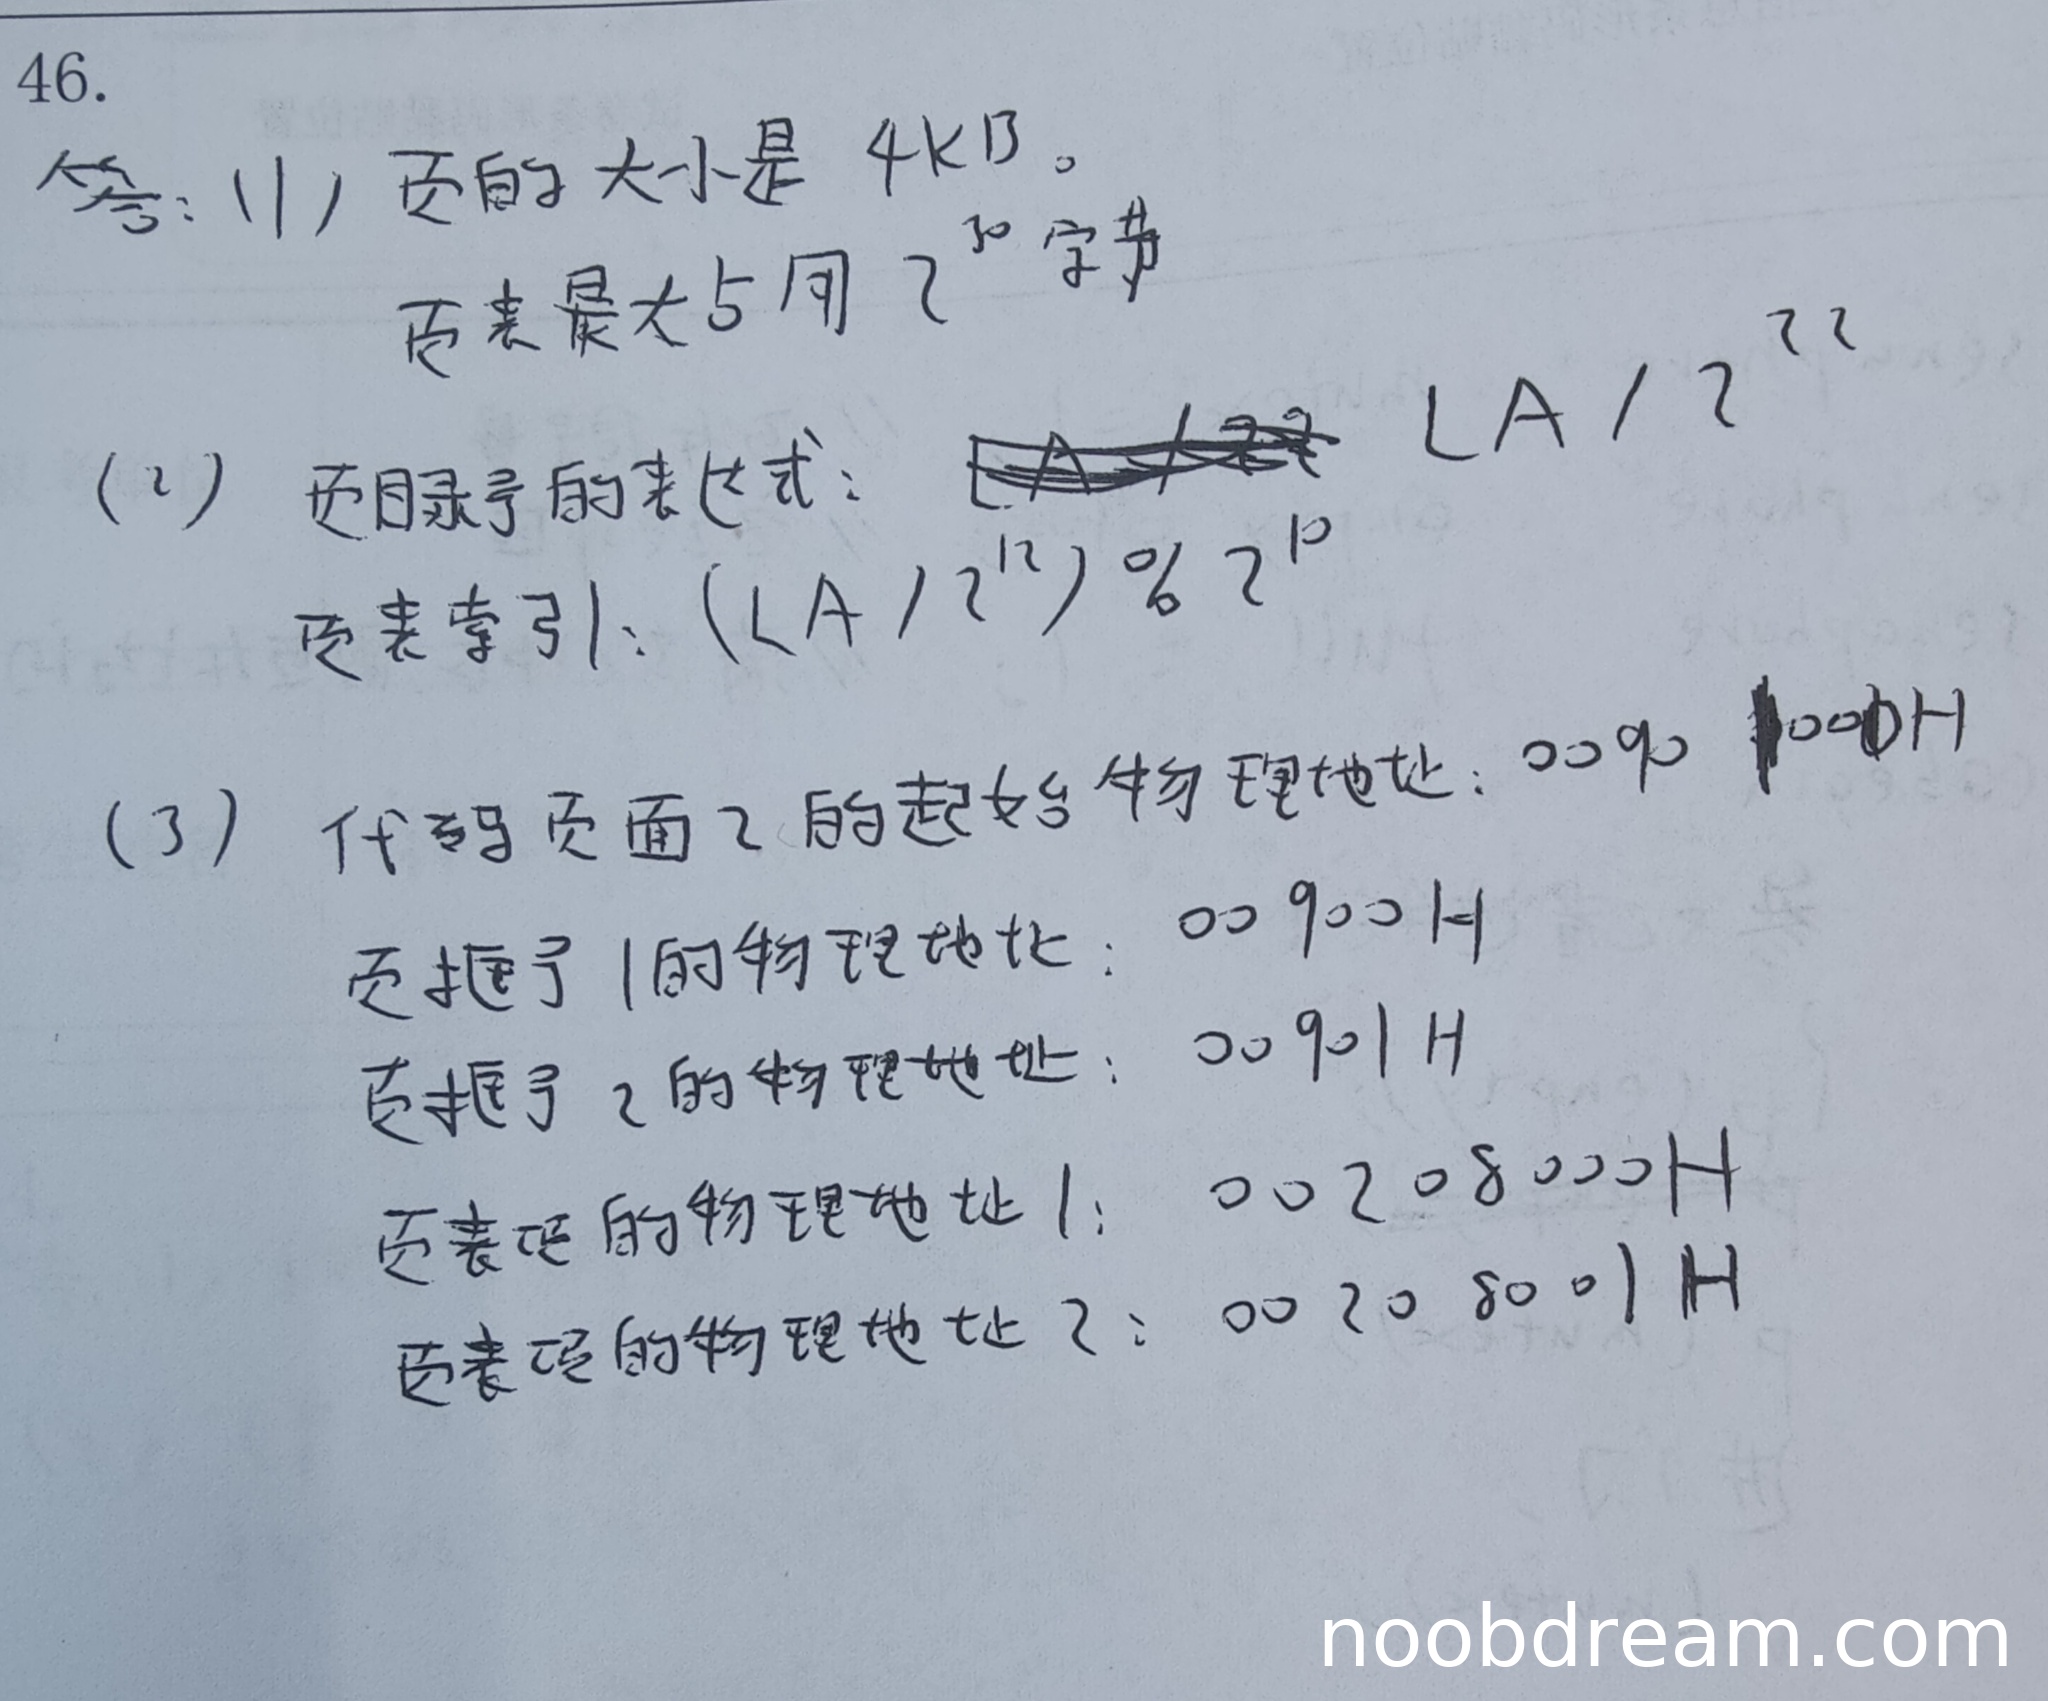 46.
答:(1) 页的大小是 4KB。
页表最大占用 2^30 字节
(2) 页目录号的表达式: LA / 2^22
页表索引: (LA / 2^12) % 2^10
(3) 代码页面2的起始物理地址: 0090 1000H
页框号1的物理地址: 00900H
页框号2的物理地址: 00901H
页表项的物理地址1: 00208000H
页表项的物理地址2: 00208001H
noobdream.com